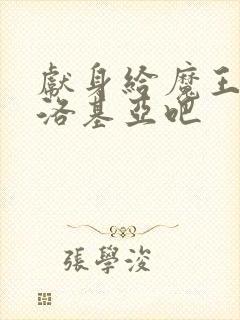 獻身給魔王
洛基亞吧
張學浚